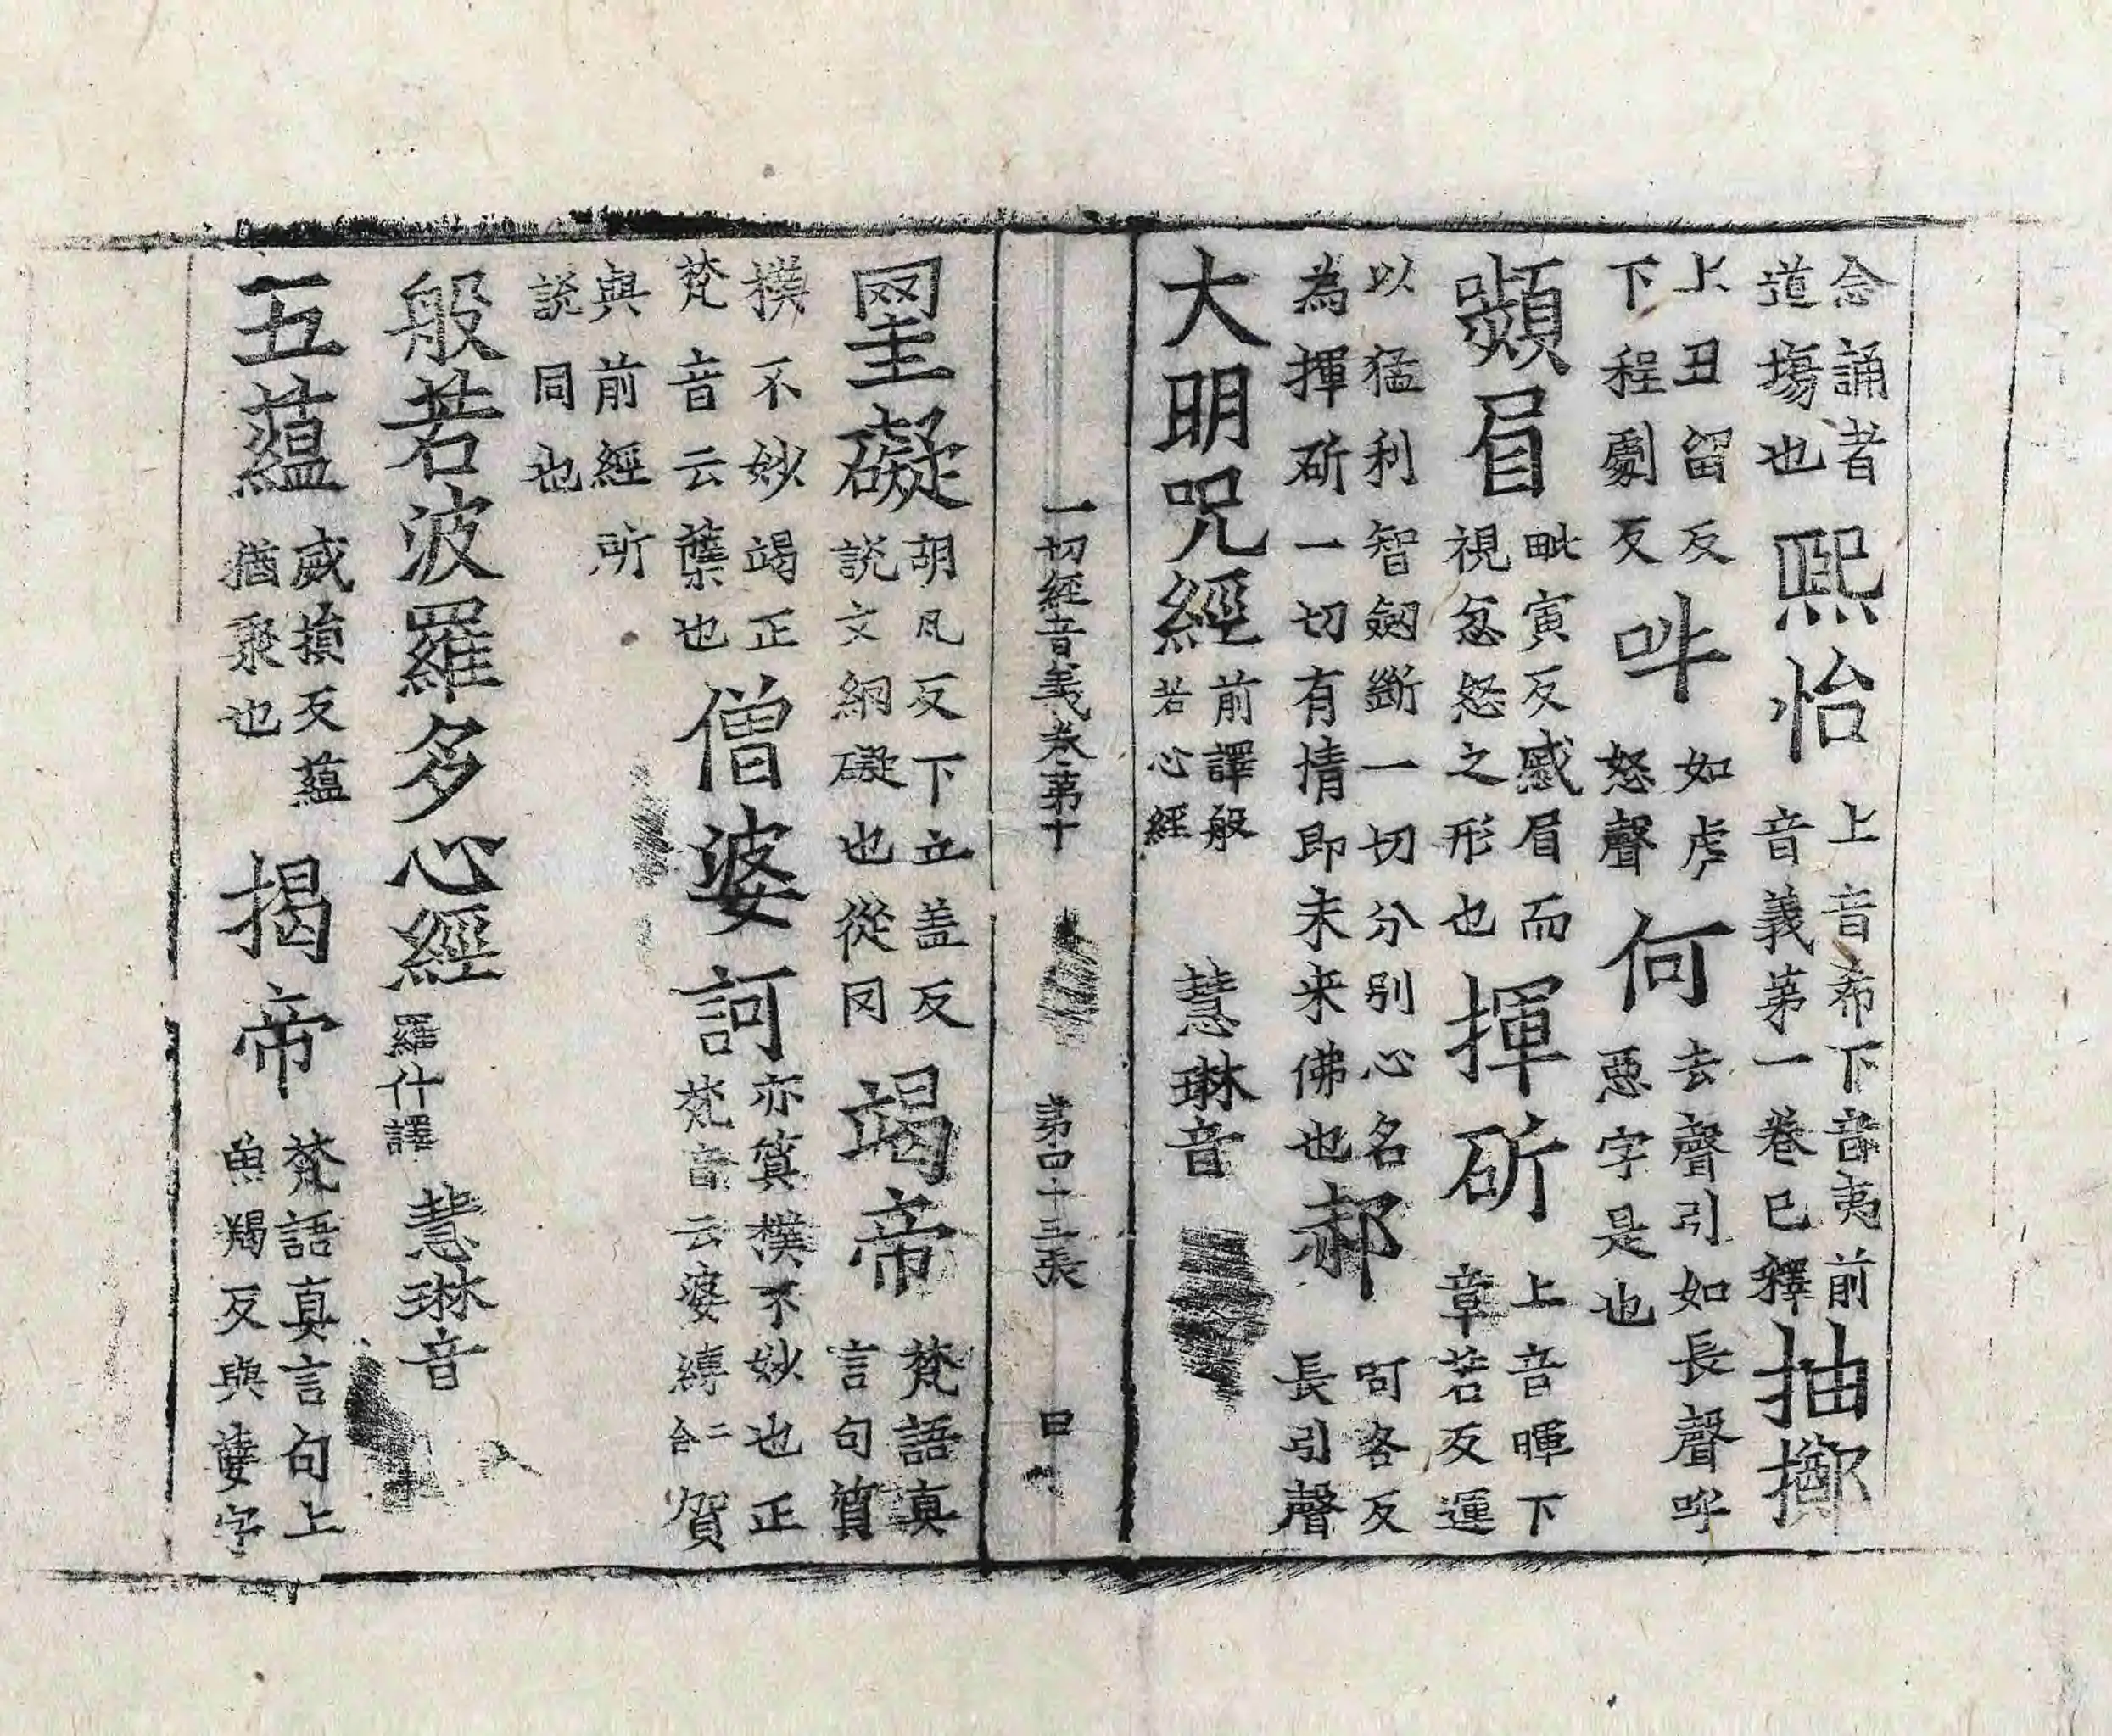 念誦者道塲也熈怡上音希下音夷前音義第一卷已釋抽擲
上丑留反下程劇反吽如虎怒聲何去聲引如長聲呼惡字是也
嚬眉毗寅反慼眉而視忿怒之形也揮斫上音暉下章若反運
以猛利智劒斷一切分別心名為揮斫一切有情即未来佛也郝呵各反長引聲
大明呪經前譯般若心經 慧琳音
一切經音義卷第十 第四十三張
罣礙胡凧反下五盖反說文網礙也從冈竭帝梵語真言句質
樸不妙竭正梵音云蘖也僧婆訶亦質樸不妙也正梵音云婆縛二合賀
與前經所說同也
般若波羅多心經羅什譯 慧琳音
五蘊威損反蘊猶聚也揭帝梵語真言句上魚羯反與孽字